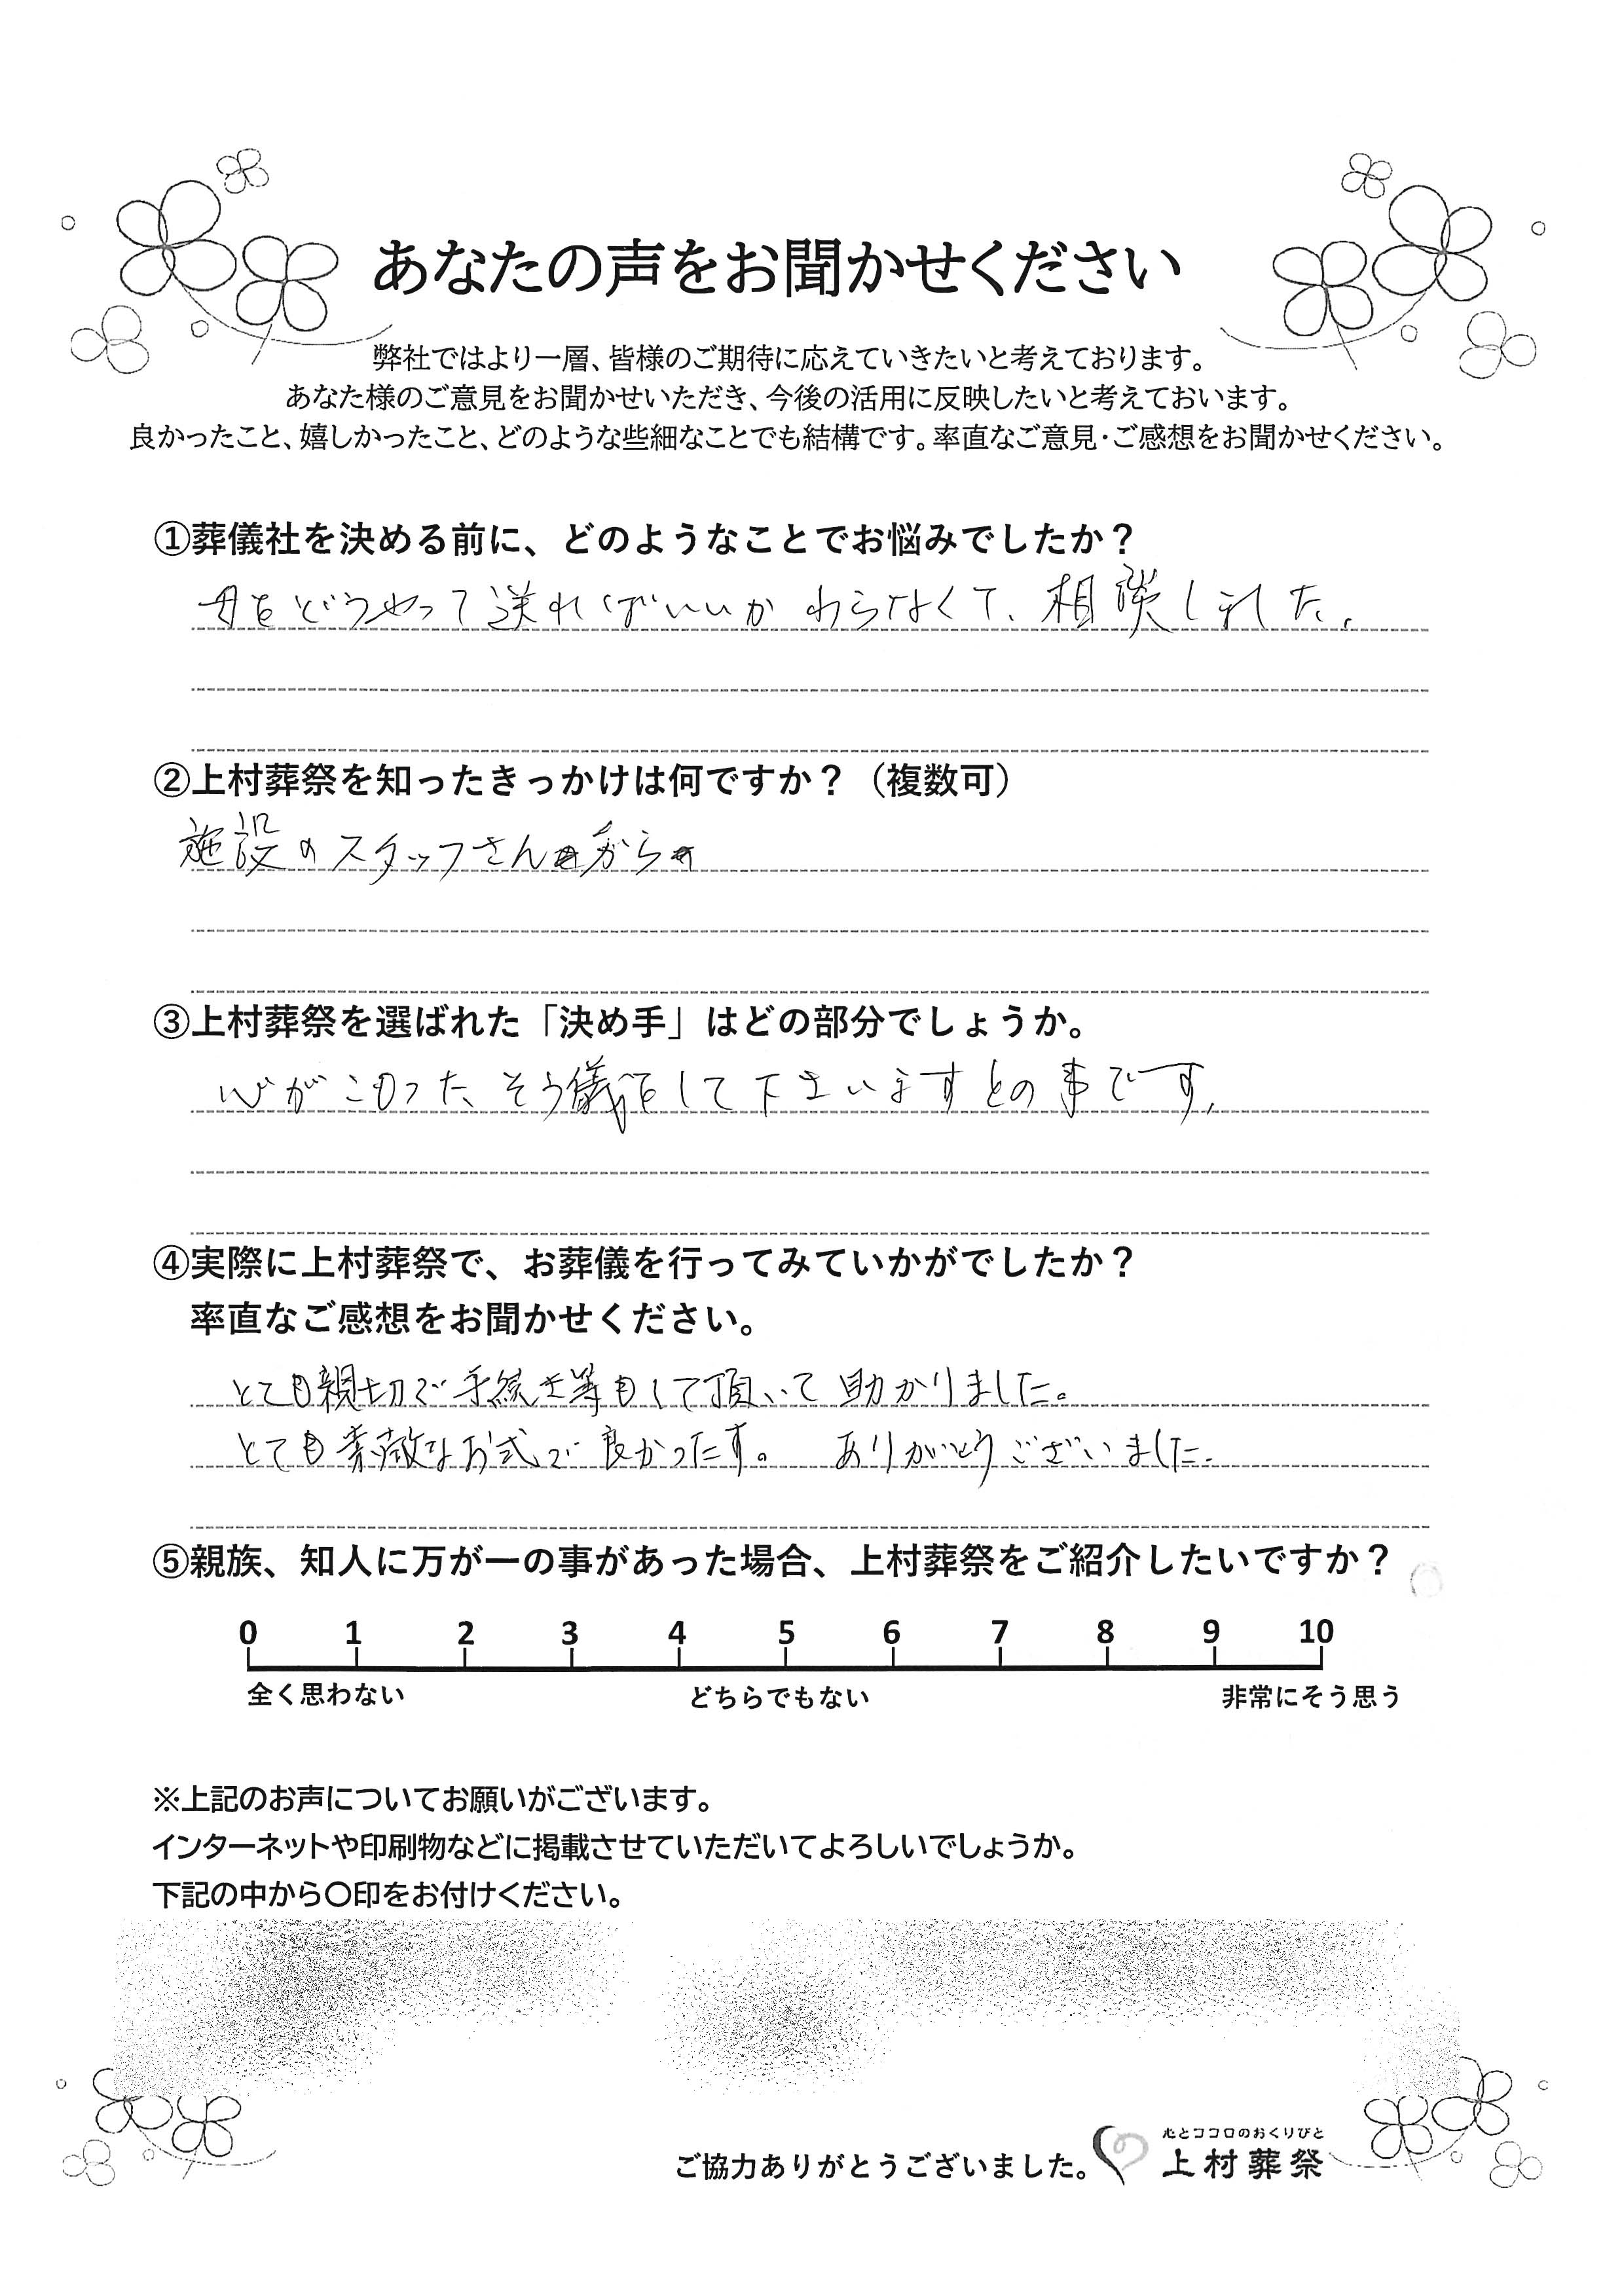 あなたの声をお聞かせください
弊社ではより一層、皆様のご期待に応えていきたいと考えております。
あなた様のご意見をお聞かせいただき、今後の活用に反映したいと考えておいます。
良かったこと、嬉しかったこと、どのような些細なことでも結構です。率直なご意見・ご感想をお聞かせください。
①葬儀社を決める前に、どのようなことでお悩みでしたか？
母をどうやって送ればいいかわらなくて、相談しました。
②上村葬祭を知ったきっかけは何ですか？（複数可）
施設のスタッフさんから
③上村葬祭を選ばれた「決め手」はどの部分でしょうか。
心がこもった、そう儀をして下さいますとの事です。
④実際に上村葬祭で、お葬儀を行ってみていかがでしたか？
率直なご感想をお聞かせください。
とても親切で手続き等もして頂いて助かりました。
とても素敵なお式で良かったす。 ありがとうございました。
⑤親族、知人に万が一の事があった場合、上村葬祭をご紹介したいですか？
0 1 2 3 4 5 6 7 8 9 10
全く思わない どちらでもない 非常にそう思う
※上記のお声についてお願いがございます。
インターネットや印刷物などに掲載させていただいてよろしいでしょうか。
下記の中から〇印をお付けください。
心とココロのおくりびと
ご協力ありがとうございました。 上村葬祭